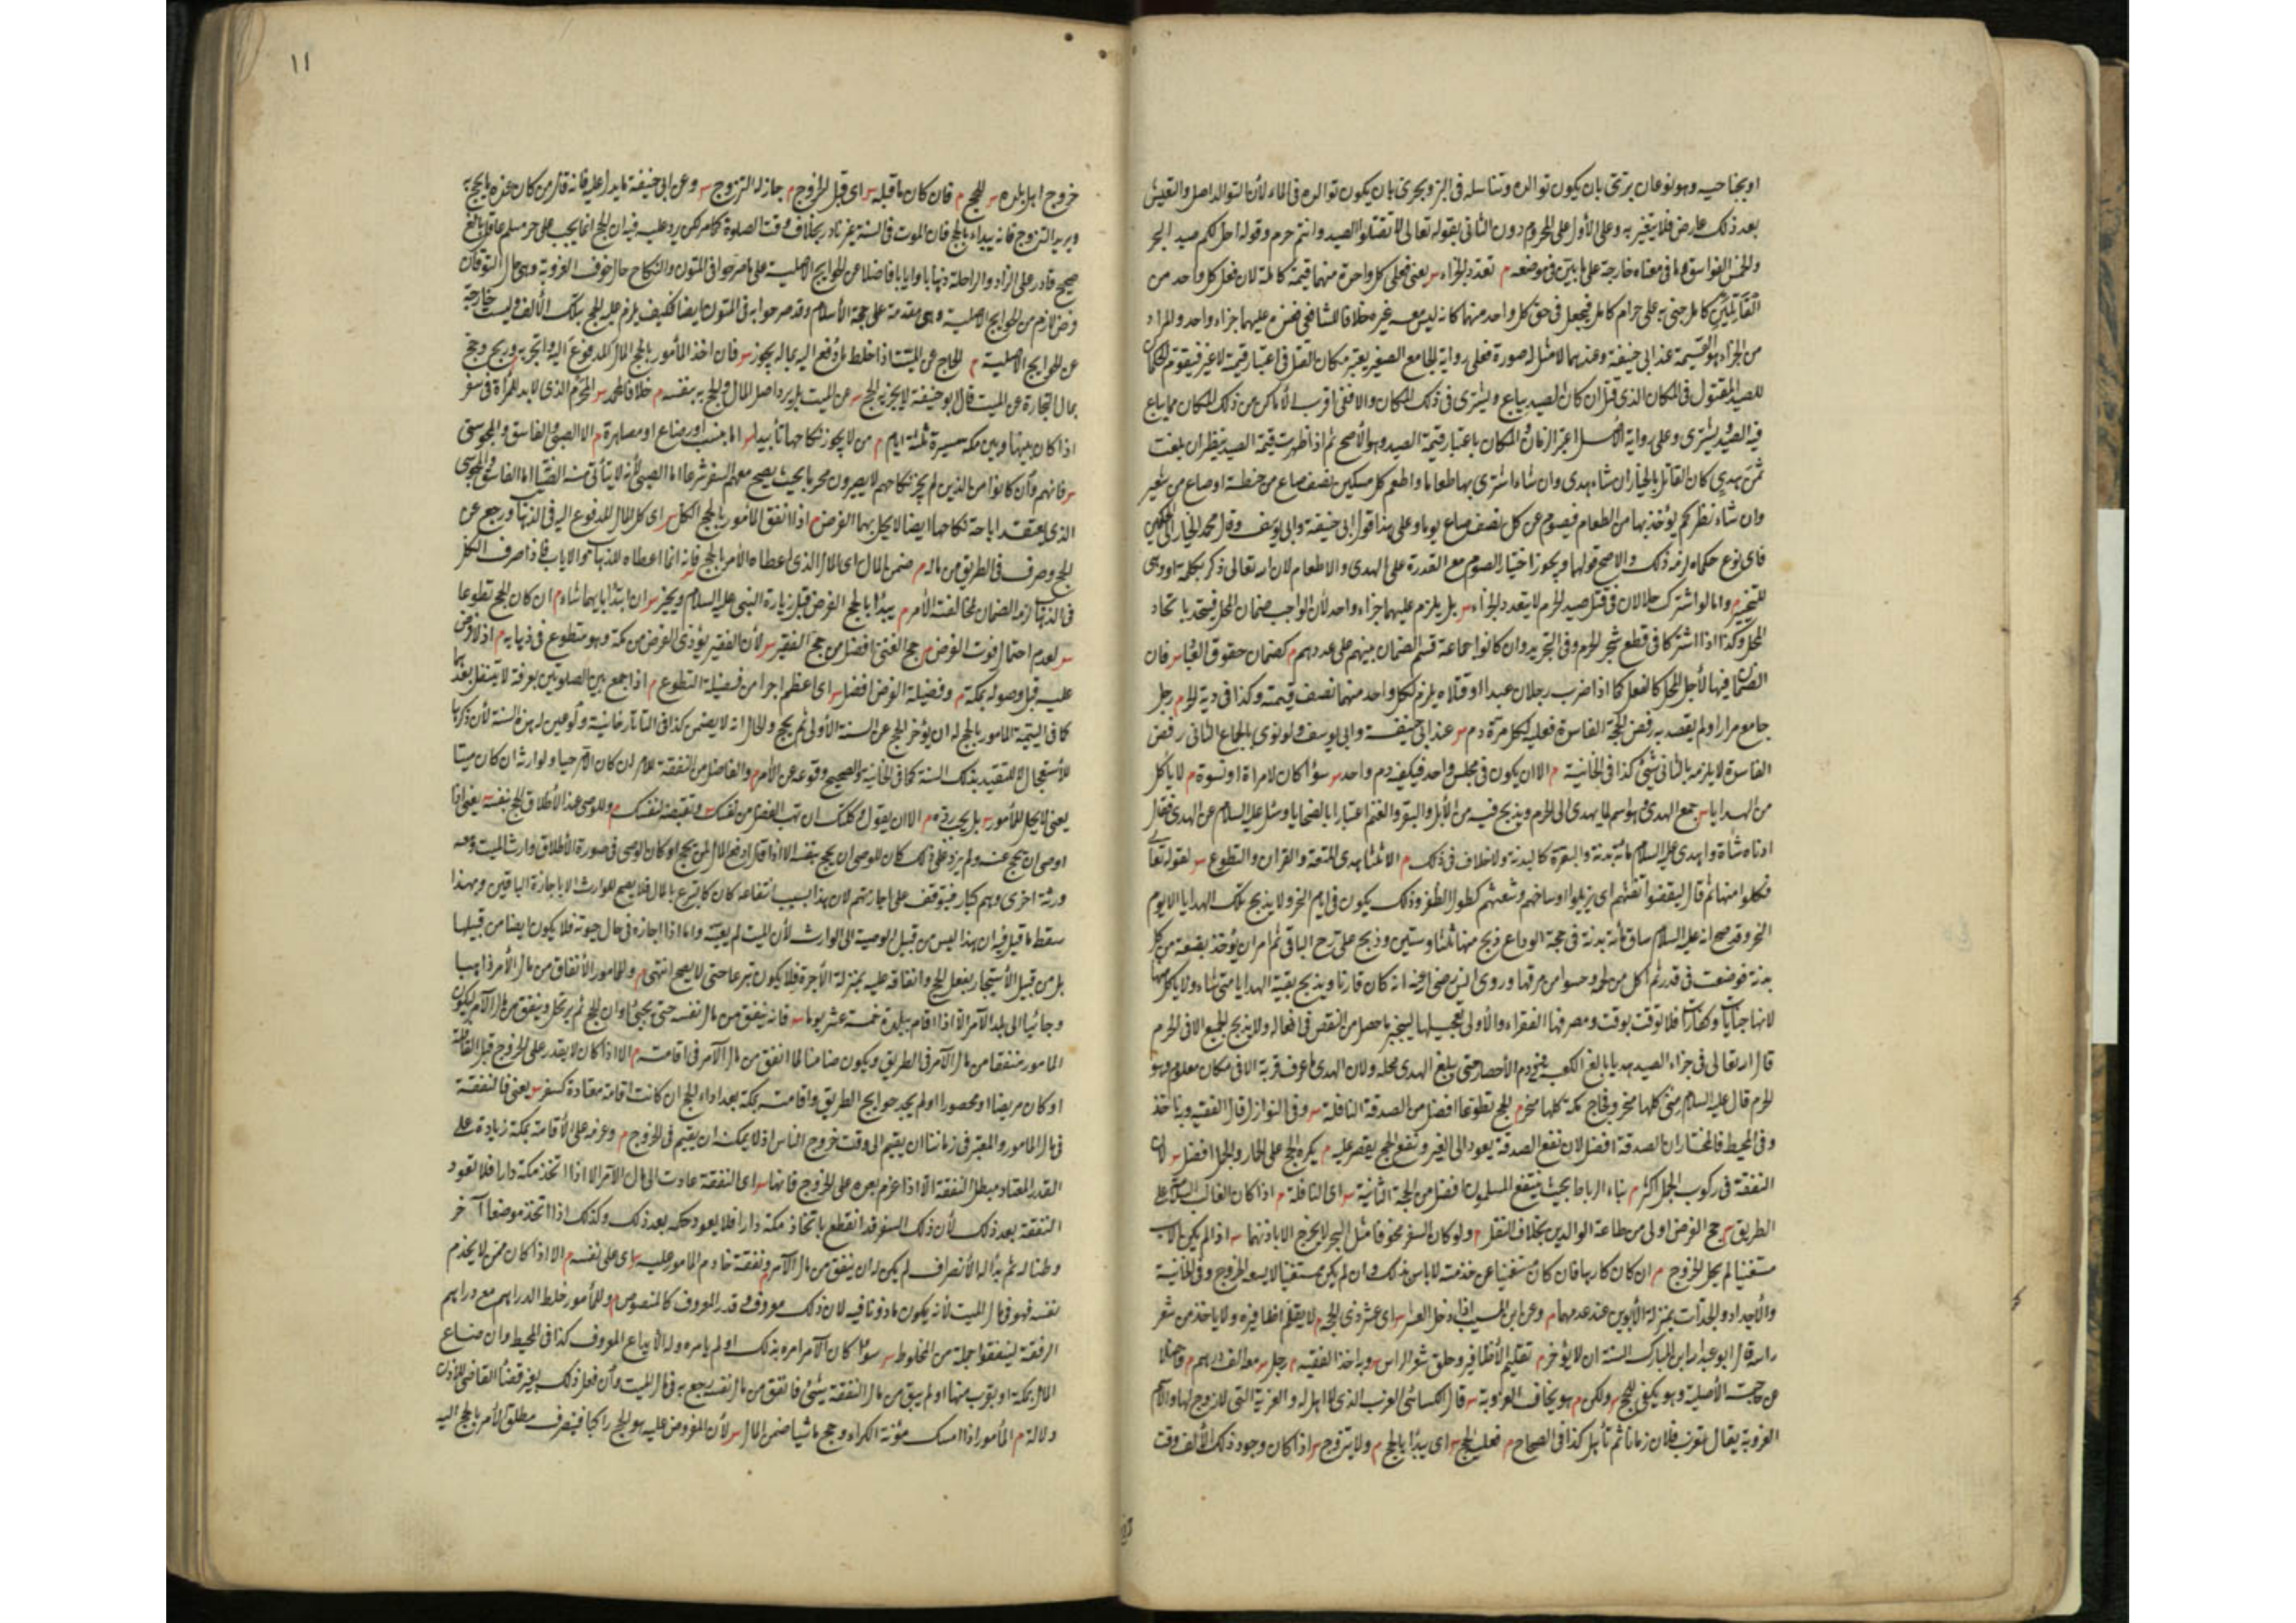 او بجناحيه وهو نوعان برّيّ بأن يكون توالده وتناسله في البر وبحري بان يكون توالده في الماء لأن التوالد اصل والتعيش
بعد ذلك عارض فلا يتغير به وعلى الأول على المحرم دون الثاني بقوله تعالى لا تقتلوا الصيد وانتم حرم وقوله احل لكم صيد البحر
والخمس الفواسق وما في معناه خارجة على ما بين في موضعه م تعدد الجزاء س يعني فعلى كل واحد منهما قيمة كاملة لان فعل كل واحد من
القاتلين كامل جنى به على حرام كامل فيجعل في حق كل واحد منهما كانه ليس معه غيره خلافا للشافعي فعنده عليهما جزاء واحد والمراد
من الجزاء هو القيمة عند ابي حنيفة وعندهما لامثل له صورة فعلى رواية الجامع الصغير يعتبر مكان القتل في اعتبار قيمة لا غير فيقوم الحكمان
للصيد المقتول في المكان الذي قتل ان كان الصيد يباع ويشترى في ذلك المكان والا ففي اقرب الأماكن من ذلك المكان مما يباع
فيه الصيد ويشترى وعلى رواية الأصل اعتبر الزمان والمكان باعتبار قيمة الصيد وهو الأصح ثم اذا ظهرت قيمة الصيد ينظر ان بلغت
ثمن هدي كان القاتل بالخيار ان شاء هدى وان شاء اشترى بها طعاما واطعم كل مسكين نصف صاع من حنطة او صاع من شعير
وان شاء نظركم يؤخذ بها من الطعام فيصوم عن كل نصف صاع يوما وعلى هذا قول ابي حنيفة وابي يوسف وقال محمد الخيار الى الحكمين
فاي نوع حكما به لزمه ذلك والاصح قولهما ويجوز اختيار الصوم مع القدرة على الهدى والاطعام لان الله تعالى ذكر بكلمة او وهي
للتخيير م واما لو اشترك حلالان في قتل صيد الحرم لا يتعدد الجزاء س بل يلزم عليهما جزاء واحد لأن الواجب ضمان المحل فيتحد باتحاد
المحل وكذا اذا اشتركا في قطع شجر الحرم وفي التجريد وان كانوا جماعة قسم الضمان بينهم على عددهم م كضمان حقوق العباد س فان
الضمان فيها لأجل المحل كالفعل كما اذا ضرب رجلان عبدا او قتلاه يلزم لكل واحد منهما نصف قيمته وكذا في دية الحر م رجل
جامع مرارا ولم يقصد به رفض الحجة الفاسدة فعليه لكل مرّة دم س عند ابي حنيفة وابي يوسف ولو نوى بالجماع الثاني رفض
الفاسدة لا يلزمه بالثاني شئ كذا في الخانية م الا ان يكون في مجلس واحد فيكفيه دم واحد س سواء كان لامراة او نسوة م لا يأكل
من الهدايا س جمع الهدى وهو اسم لما يهدى الى الحرم ويذبح فيه من الأبل والبقر والغنم اعتبارا بالضحايا وسئل عليه السلام عن الهدى فقال
ادناه شاة واهدى عليه السلام مائة بدنة والبقرة كالبدنة ولا خلاف في ذلك م الا ثلثا هدى المتعة والقران والتطوع س لقوله تعالى
فكلوا منها ثم قال ليقضوا تفثهم اي يزيلوا اوساخهم وشعثهم كطول الظفر وذلك يكون في ايام النحر ولا يذبح تلك الهدايا الا يوم
النحر وقد صح انه عليه السلام ساق مائة بدنة في حجة الوداع ذبح منها ثلثا وستين وذبح علي رض الباقي ثم امر ان يؤخذ بضعة من كل
بدنة فوضعت في قدر ثم أكل من لحمه وحسوا من مرقها وروى انس رضي عنه انه كان قارنا ويذبح بقية الهدايا متى شاء ولا يأكل منها
لانها جنايات وكفارات فلا توقت بوقت ومصرفها الفقراء والأولى تعجيلها لينجبر ما حصل من النقص في افعاله ولا يذبح الجميع الا في الحرم
قال الله تعالى في جزاء الصيد هديا بالغ الكعبة وفي دم الأحصار حتى يبلغ الهدى محله ولان الهدى ما عرف قربة الا في مكان معلوم وهو
الحرم قال عليه السلام منى كلها منحر وفجاج مكة كلها منحر م الحج تطوعا افضل من الصدقة النافلة س وفي النوازل قال الفقيه وبه ناخذ
وفي المحيط فالمختار ان الصدقة افضل لان نفع الصدقة يعود الى الغير ونفع الحج يقصر عليه م يكره الحج على الحمار والجمل افضل س لان
النفقة في ركوب الجمل اكثر م بناء الرباط بحيث ينتفع المسلمون افضل من الحجة الثانية س اى النافلة م اذا كان الغالب السلامة على
الطريق س حج الفرض اولى من طاعة الوالدين بخلاف النفل م ولو كان السفر مخوفا مثل البحر لا يخرج الا باذنهما س اذا لم يكن الاب
مستغنيا لم يحل الخروج م ان كان كارها فان كان مستغنيا عن خدمته لا باس بذلك وان لم يكن مستغنيا لا يسعه الخروج وفي الخانية
والأجداد والجدات بمنزلة الأبوين عند عدمهما م وعن ابن المسيب اذا دخل العشر س اى عشر ذي الحجة م لا يقلم اظافيره ولا ياخذ من شعر
راسه قال ابو عبد الله ابن المبارك السنة ان لا يؤخر م تقليم الأظافير وحلق شعر الراس س وبه اخذ الفقيه م رجل س معه الف درهم م فاضلا
عن حاجته الأصلية وهو يكفي للحج س ولكن م هو يخاف العزوبة س قال الكسائي العزب الذي لا اهل له والعزبة التي لا زوج لها والاسم
العزوبة يقال تعزب فلان زمانا ثم تأهل كذا في الصحاح م فعليه الحج س اى يبدأ بالحج م ولا يتزوج س اذا كان وجود ذلك الألف وقت
١١
خروج اهل بلده س للحج م فان كان ما قبله س اى قبل الخروج م جاز له التزوج س وعن ابي حنيفة ما يدل عليه فانه قال من كان عنده ما يحج به
ويريد التزوج فانه يبداء بالحج فان الموت في السنة غير نادر بخلاف وقت الصلوة كما مر لكن يرد عليه فيه ان الحج انما يجب على حر مسلم عاقل بالغ
صحيح قادر على الزاد والراحلة ذهابا وايابا فاضلا عن الحوايج الاصلية على ما صرحوا في المتون والنكاح حال خوف العزوبة وهي حال التوقان
فرض لازم من الحوايج الاصلية وهي مقدمة على حجة الأسلام وقد صرحوا به في المتون ايضا فكيف يلزم عليه الحج بتلك الألف وليست خارجة
عن الحوايج الاصلية م الحاج عن الميت اذا خلط ما دفع اليه بماله يجوز س فان اخذ المأمور بالحج المال المدفوع اليه واتجر به وربح وحج
بمال التجارة عن الميت قال ابو حنيفة لا يجزيه الحج س عن الميت بل يرد اصل المال والحج به بنفسه م خلافا لمحمد س المحرم الذي لا بد للمرأة في سفر
اذا كان بينها وبين مكة مسيرة ثلثة ايام م من لا يجوز نكاحها تأبيدا س اما بنسب او رضاع او مصاهرة م الا الصبي والفاسق والمجوسي
س فانهم وأن كانوا من الذين لم يجز نكاحهم لا يصيرون محرما بحيث يصح معهم السفر شرعا اما الصبي لأنه لا يتأتى منه الصيانة اما الفاسق والمجوسي
الذي يعتقد اباحة نكاحها ايضا لا يحل بهما الفرض م اذا انفق المأمور بالحج الكل س اى كل المال المدفوع اليه في الذهاب ورجع عن
الحج وصرف في الطريق من ماله م ضمن المال اى المال الذي اعطاه الأمر بالحج فانه انما اعطاه للذهاب والاياب فاذا صرف الكل
في الذهاب لزمه الضمان لمخالفته الأمر م يبدأ بالحج الفرض قبل زيارة النبي عليه السلام ويخير س ان ابتدأ بايهما شاء م ان كان الحج تطوعا
س لعدم احتمال فوت الفرض م حج الغني افضل من حج الفقير س لأن الفقير يؤدى الفرض من مكة وهو متطوع في ذهابه م اذ لا فرض
عليه قبل وصوله بمكة م وفضيلة الفرض افضل س اى اعظم اجرا من فضيلة التطوع م اذا جمع بين الصلوتين بعرفة لا يتنفل بعدها
كما في اليتيمة المامور بالحج له ان يؤخر الحج عن السنة الأولى ثم يحج والحال انه لا يضمن كذا في التاتارخانية ولو عين له هذه السنة لأن ذكرها
للأستعجال لا للتقييد بذلك السنة كما في الخانية والصحيح وقوعه عن الأمر م والفاضل من النفقة للامر ان كان الامر حيا ولوارثه ان كان ميتا
يعني لا يحل للمأمور س بل يجب رده م الا ان يقول وكلتك ان تهب الفضل من نفسك س وتقبضه لنفسك م وللوصي عند الأطلاق الحج بنفسه يعني اذا
اوصى ان يحج عنه ولم يزد على ذلك كان للوصي ان يحج بنفسه الا اذا قال ادفع المال لمن يحج او كان الوصي في صورة الأطلاق وارث الميت ومعه
ورثة اخرى وهم كبار فيتوقف على اجازتهم لان بهذا السبب انتفاعه كان كالتبرع بالمال فلا يصح للوارث الا باجازة الباقين وبهذا
سقط ما قيل فيه ان هذا ليس من قبيل الوصية الى الوارث لأن الميت لم يعينه واما اذا اجازه في حال حيوته فلا يكون ايضا من قبيلها
بل من قبيل الأستيجار بفعل الحج وانفاقه عليه بمنزلة الأجرة فلا يكون تبرعا حتى لا يصح انتهى م وللمامور الأنفاق من مال الأمر ذاهبا
وجائيا الى بلد الآمر الا اذا اقام ببلدة خمسة عشر يوما س فانه ينفق من مال نفسه حتى يجئ اوان الحج ثم يرتحل وينفق من مال الآمر ليكون
المامور منفقا من مال الآمر في الطريق ويكون ضامنا لما انفق من مال الآمر في اقامته م الا اذا كان لا يقدر على الخروج قبل القافلة
او كان مريضا او محصورا او لم يجد حوايج الطريق واقامته بمكة بعد اداء الحج ان كانت اقامة معتادة كسفر س يعني فالنفقة
في مال المامور والمعتبر في زماننا ان يقيم الى وقت خروج الناس اذ لا يمكنه ان يقيم في الخروج م وعزمه على الأقامة بمكة زيادة على
القدر المعتاد مبطل النفقة الا اذا عزم بعده على الخروج فانها س اى النفقة عادت الى مال الآمر الا اذا اتخذ مكة دارا فلا تعود
النفقة بعد ذلك لأن ذلك السفر قد انقطع باتخاذ مكة دارا فلا يعود حكمه بعد ذلك وكذلك اذا اتخذ موضعا آخر
وطنا له ثم بدأ له الأنصراف لم يكن له ان ينفق من مال الآمر م ونفقة خادم المامور عليه س اى على نفسه م الا اذا كان ممن لا يخدم
نفسه فهو في مال الميت لأنه يكون ماذونا فيه لان ذلك معروف وقدر المعروف كالمنصوص م وللمأمور خلط الدراهم مع دراهم
الرفقة لينفقوا جملة من المخلوط س سواء كان الآمر امره بذلك او لم يامره وله الأيداع المعروف كذا في المحيط وان ضاع
المال بمكة او بقرب منها او لم يبق من مال النفقة شئ فانفق من مال نفسه رجع به في مال الميت وأن فعل ذلك بغير قضأ القاضي للاذن
دلالة م المأمور اذا امسك مؤنة الكراء وحج ماشيا ضمن المال س لأن المفروض عليه هو الحج راكبا فينصرف مطلق الأمر بالحج اليه